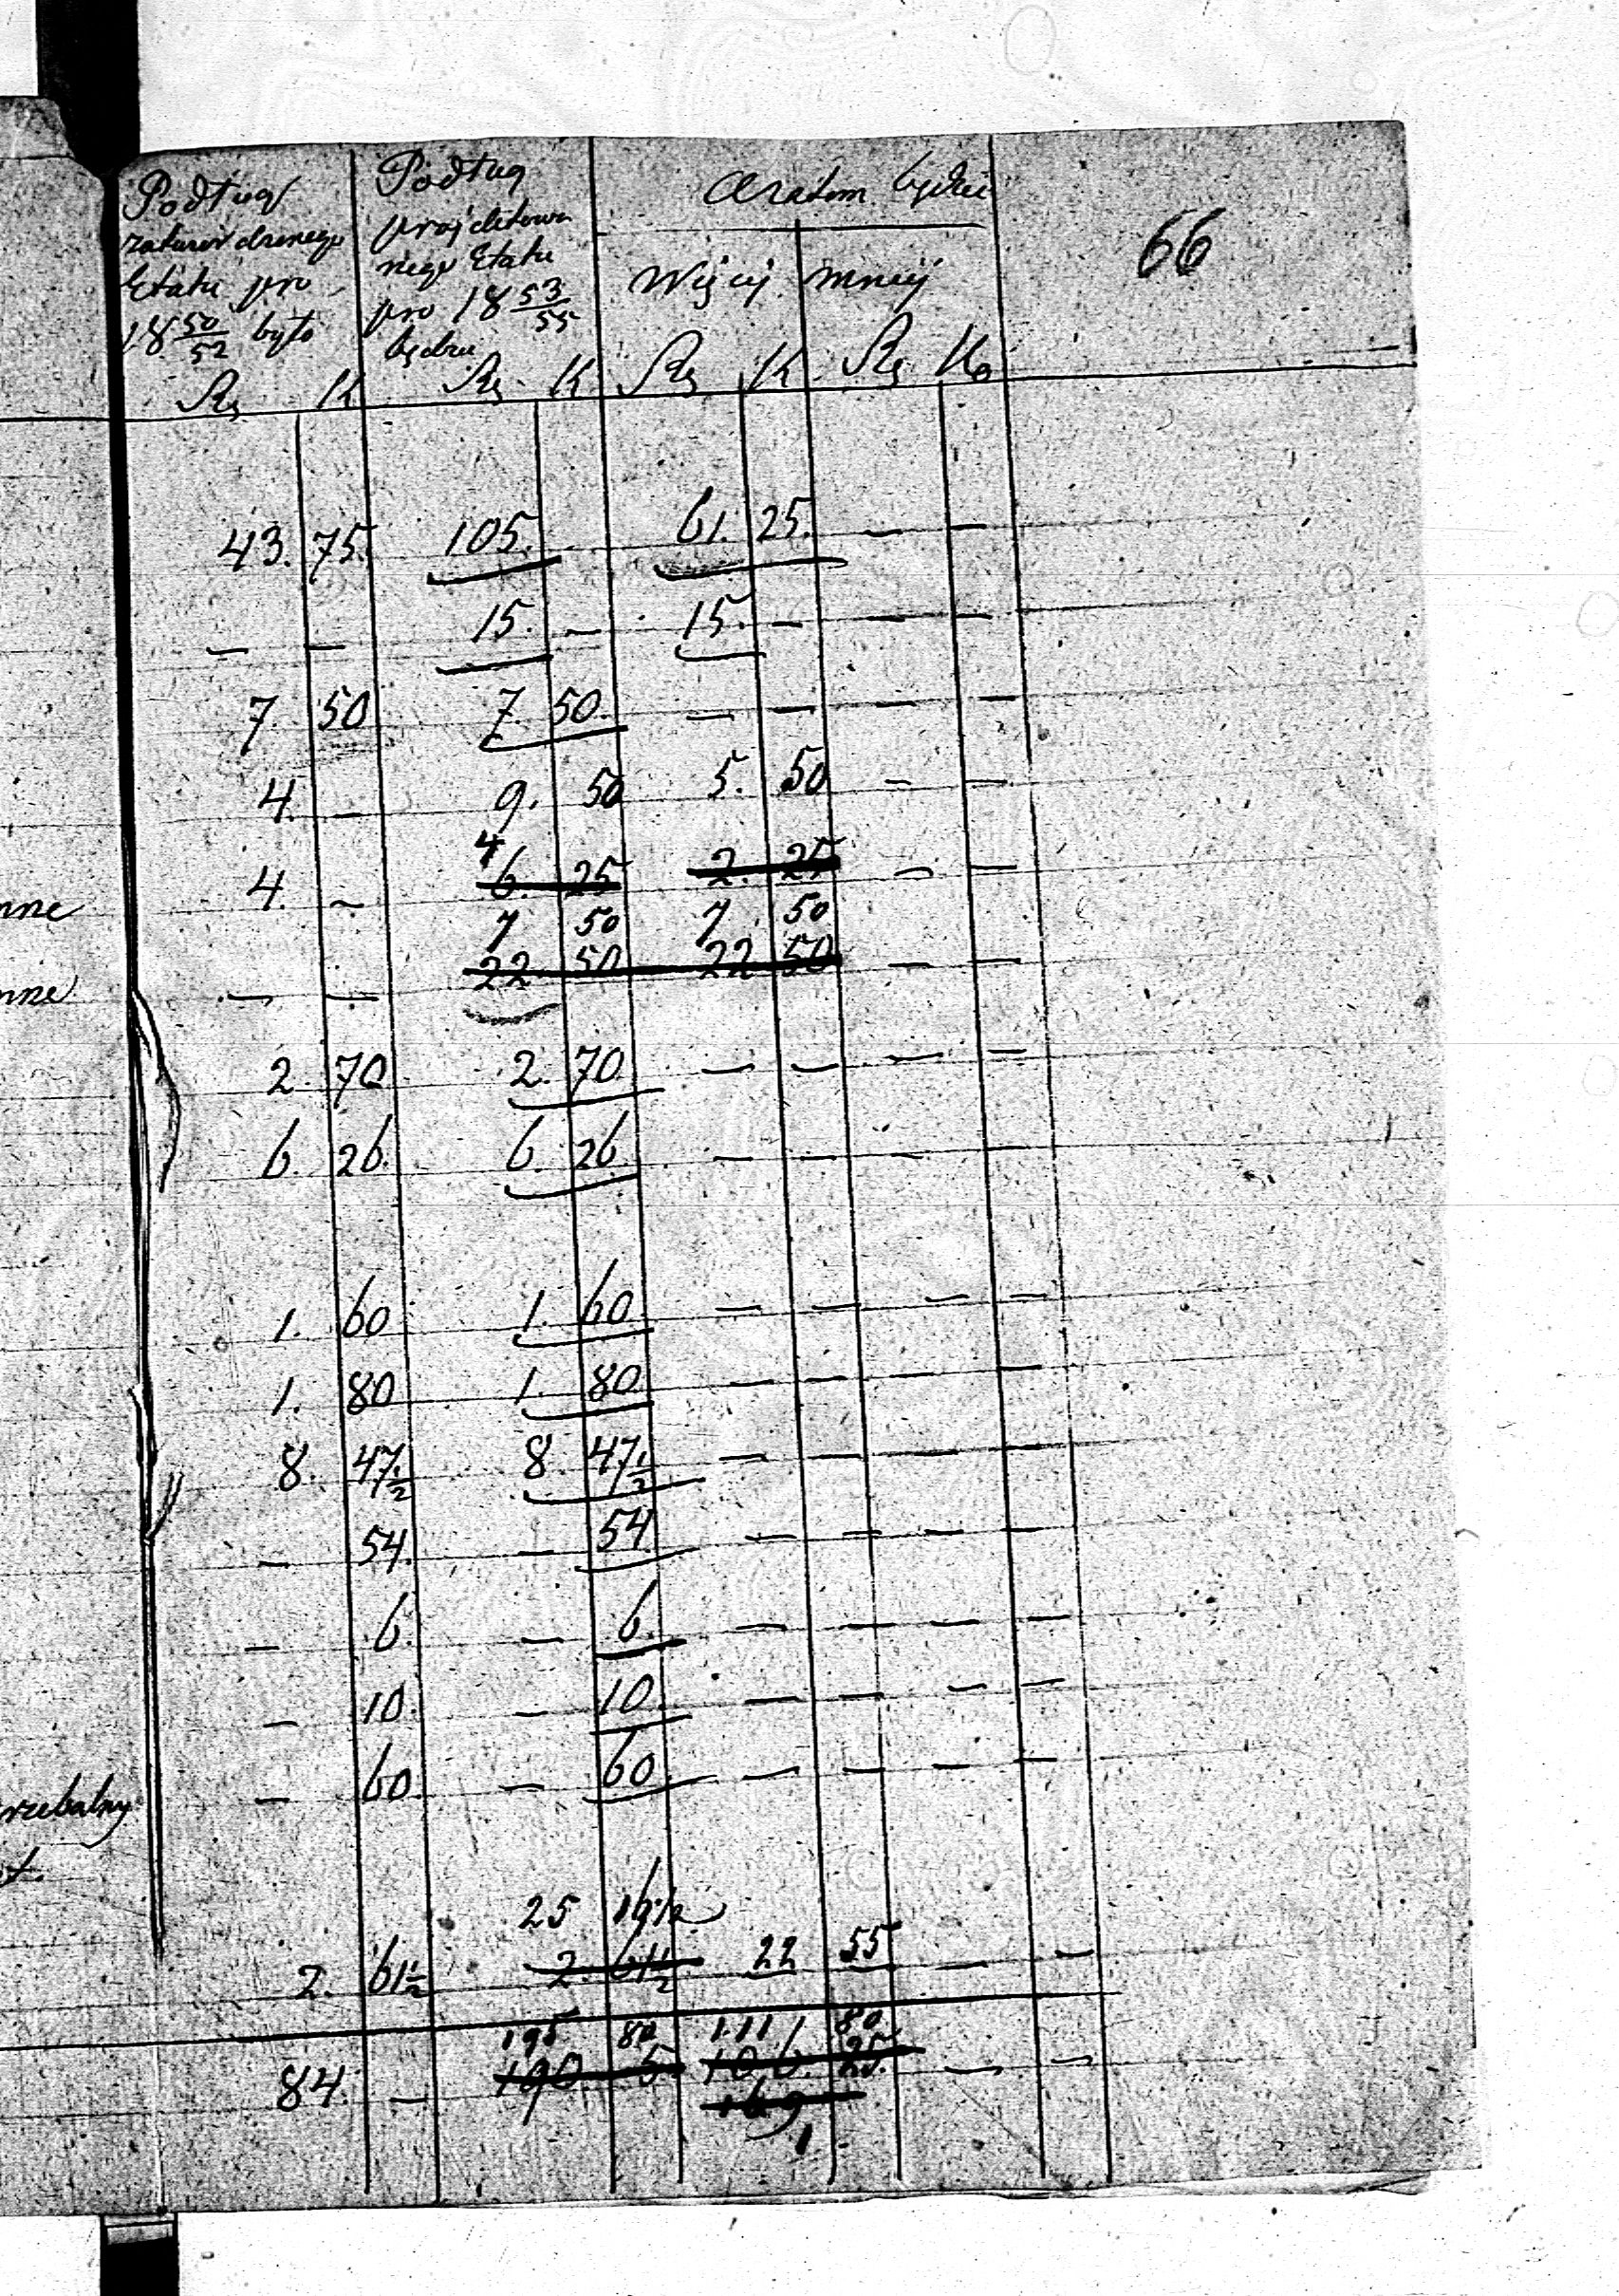 66
Podług
zatwierdzonego
Etatu pro
18 50/52 było
Rs K
Podług
projektowa
nego Etatu
pro 18 53/55
będzie
Rs K
A zatem będzie
Więcej mniej
Rs K Rs Ko
43. 75. 105. - 61. 25. — —
— — 15. — 15. — — —
7. 50 7. 50. — — — —
4. — 9. 50 5. 50 — —
4
4. — 6. 25 2. 25 — —
nne
7 50 7 50
— — 22 50 22 50 — —
nne
2. 70 2. 70. — — — —
6. 26. 6. 26 — — — —
1. 60 1. 60. — — — —
1. 80 1. 80. — — — —
8. 47 1/2 8 47 1/2 — — — —
— 54. — 54. — — — —
— 6. — 6. — — — —
— 10. — 10. — — — —
— 60. — 60. — — — —
rzebalny
t.
25 16 1/2
2. 61 1/2 2. 61 1/2 22 55 — —
195 80 111 80
84. — 190 5 106. 25. — —
169